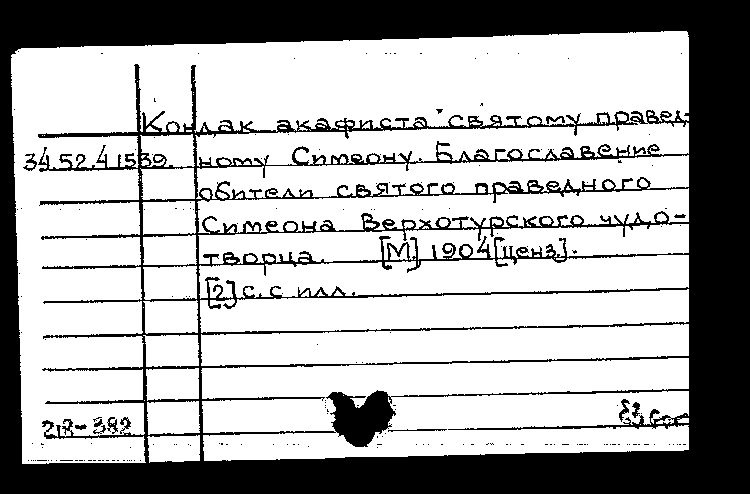 Кондак акафиста святому правед-
34.52.41539. ному Симеону. Благославение
обители святого праведного
Симеона Верхотурского чудо-
творца. [М.] 1904 [ценз.].
[2] с. с илл.
218-382